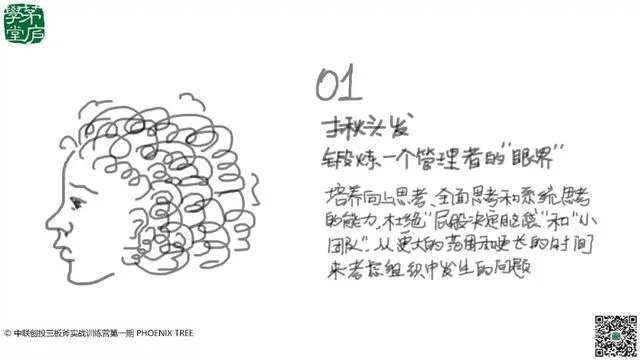 茅庐
學堂
01
揪头发
锻炼一个管理者的"眼界"
培养向上思考、全面思考和系统思考
的能力,杜绝"屁股决定脑袋"和"小
团队",从更大的范围和更长的时间
来考虑组织中发生的问题
© 中联创投三板斧实战训练营第一期 PHOENIX TREE